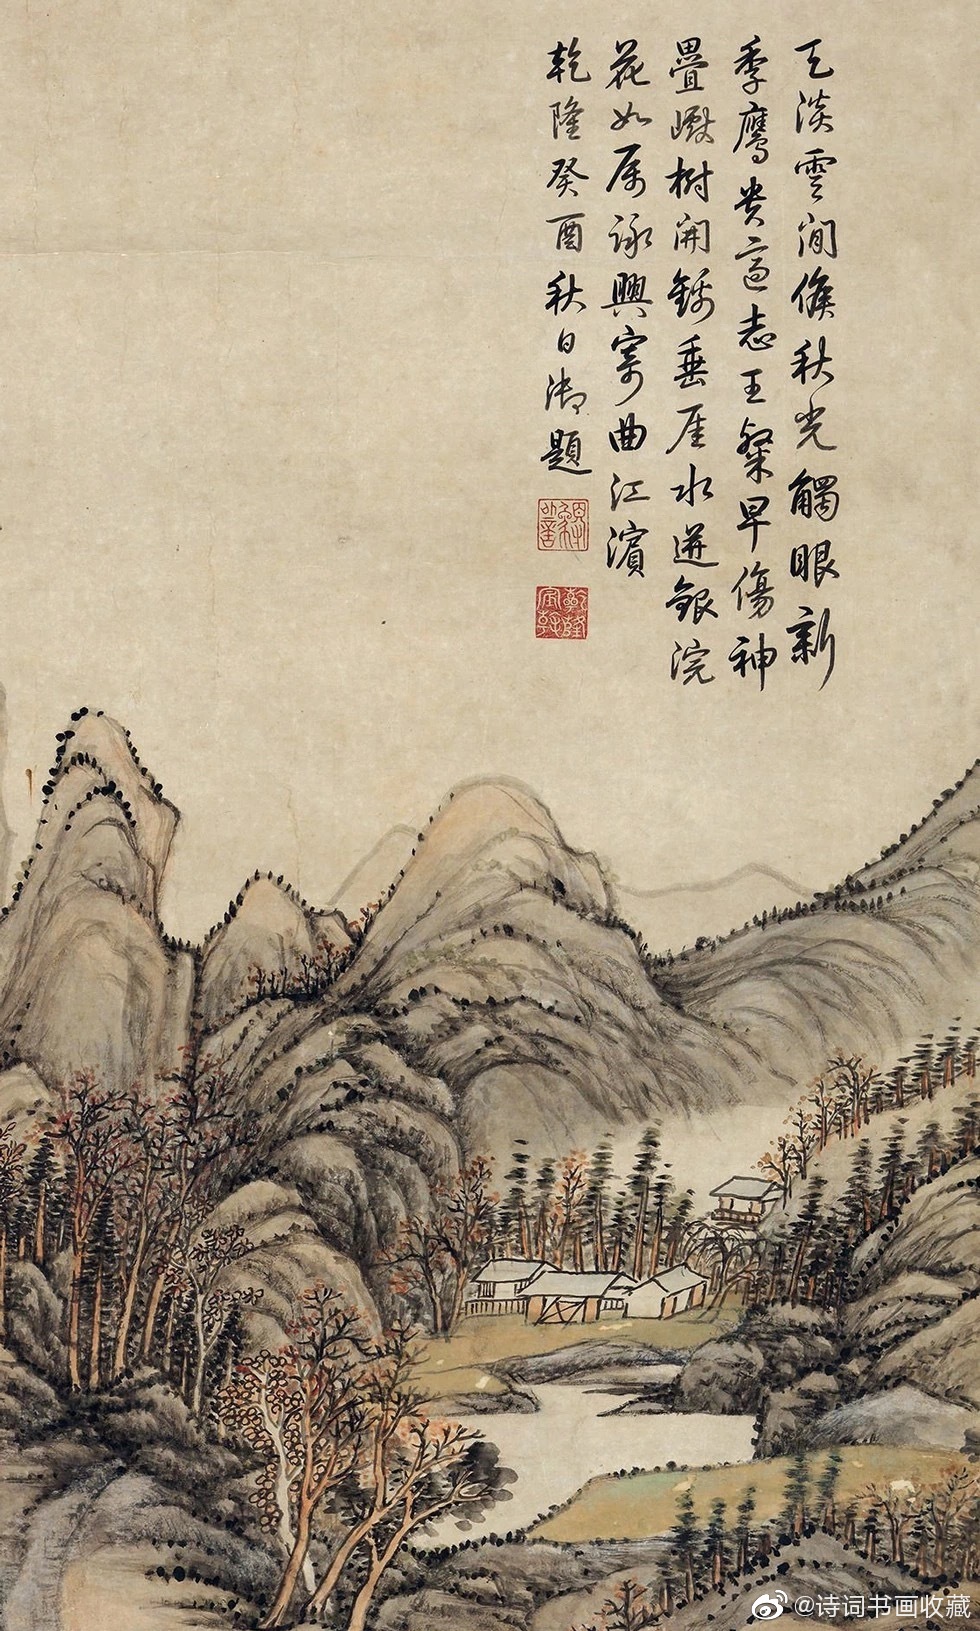 天淡雲閒候秋光觸眼新
季鷹貴適志王粲早傷神
疊巘樹開錦垂厓水迸銀浣
花如属詠興寄曲江濱
乾隆癸酉秋日御題
乾隆宸翰
@诗词书画收藏